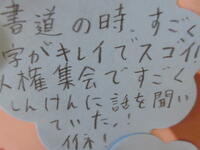 書道の時、すごく
字がキレイでスゴイ!
人権集会ですごく
しんけんに話を聞い
ていた。!
イイネ!